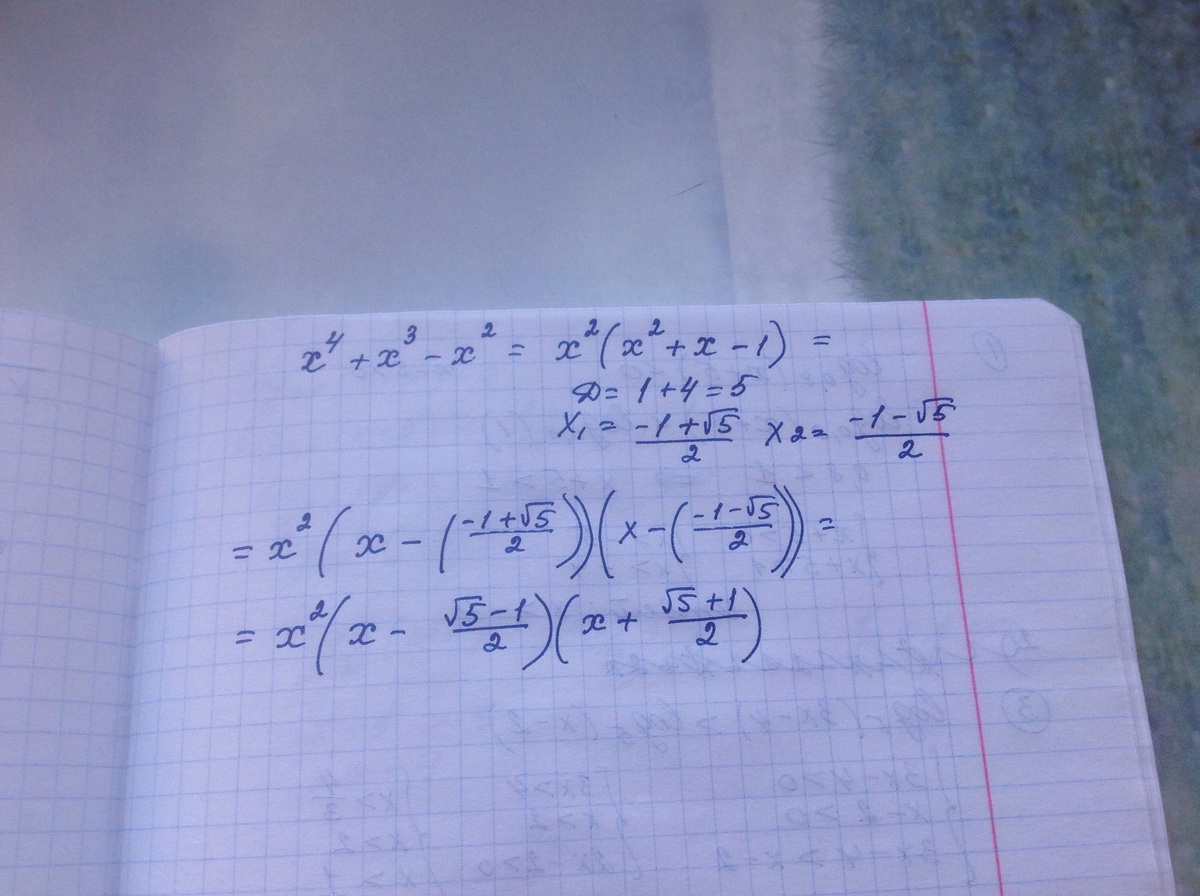 x⁴ + x³ − x² = x²(x² + x − 1) =
D = 1 + 4 = 5
x₁ = (−1 + √5)/2 x₂ = (−1 − √5)/2
= x²(x − ((−1 + √5)/2))(x − ((−1 − √5)/2)) =
= x²(x − (√5 − 1)/2)(x + (√5 + 1)/2)